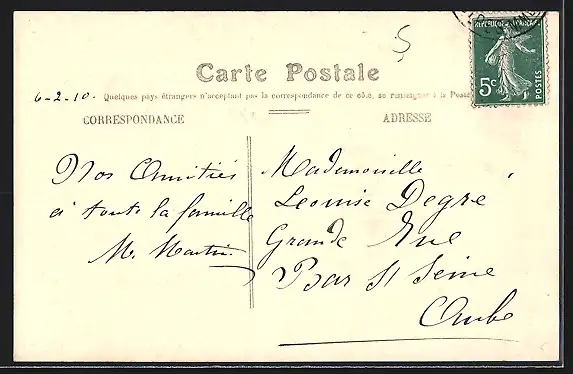 Carte Postale
6-2-10. Quelques pays étrangers n'acceptant pas la correspondance de ce côté, se renseigner à la Poste
CORRESPONDANCE
ADRESSE
REPUBLIQUE FRANÇAISE
5c
POSTES
Nos Amitiés
à toute la famille
M. Martin
Mademoiselle
Léonise Degré
Grande Rue
Bar St Seine
Aube